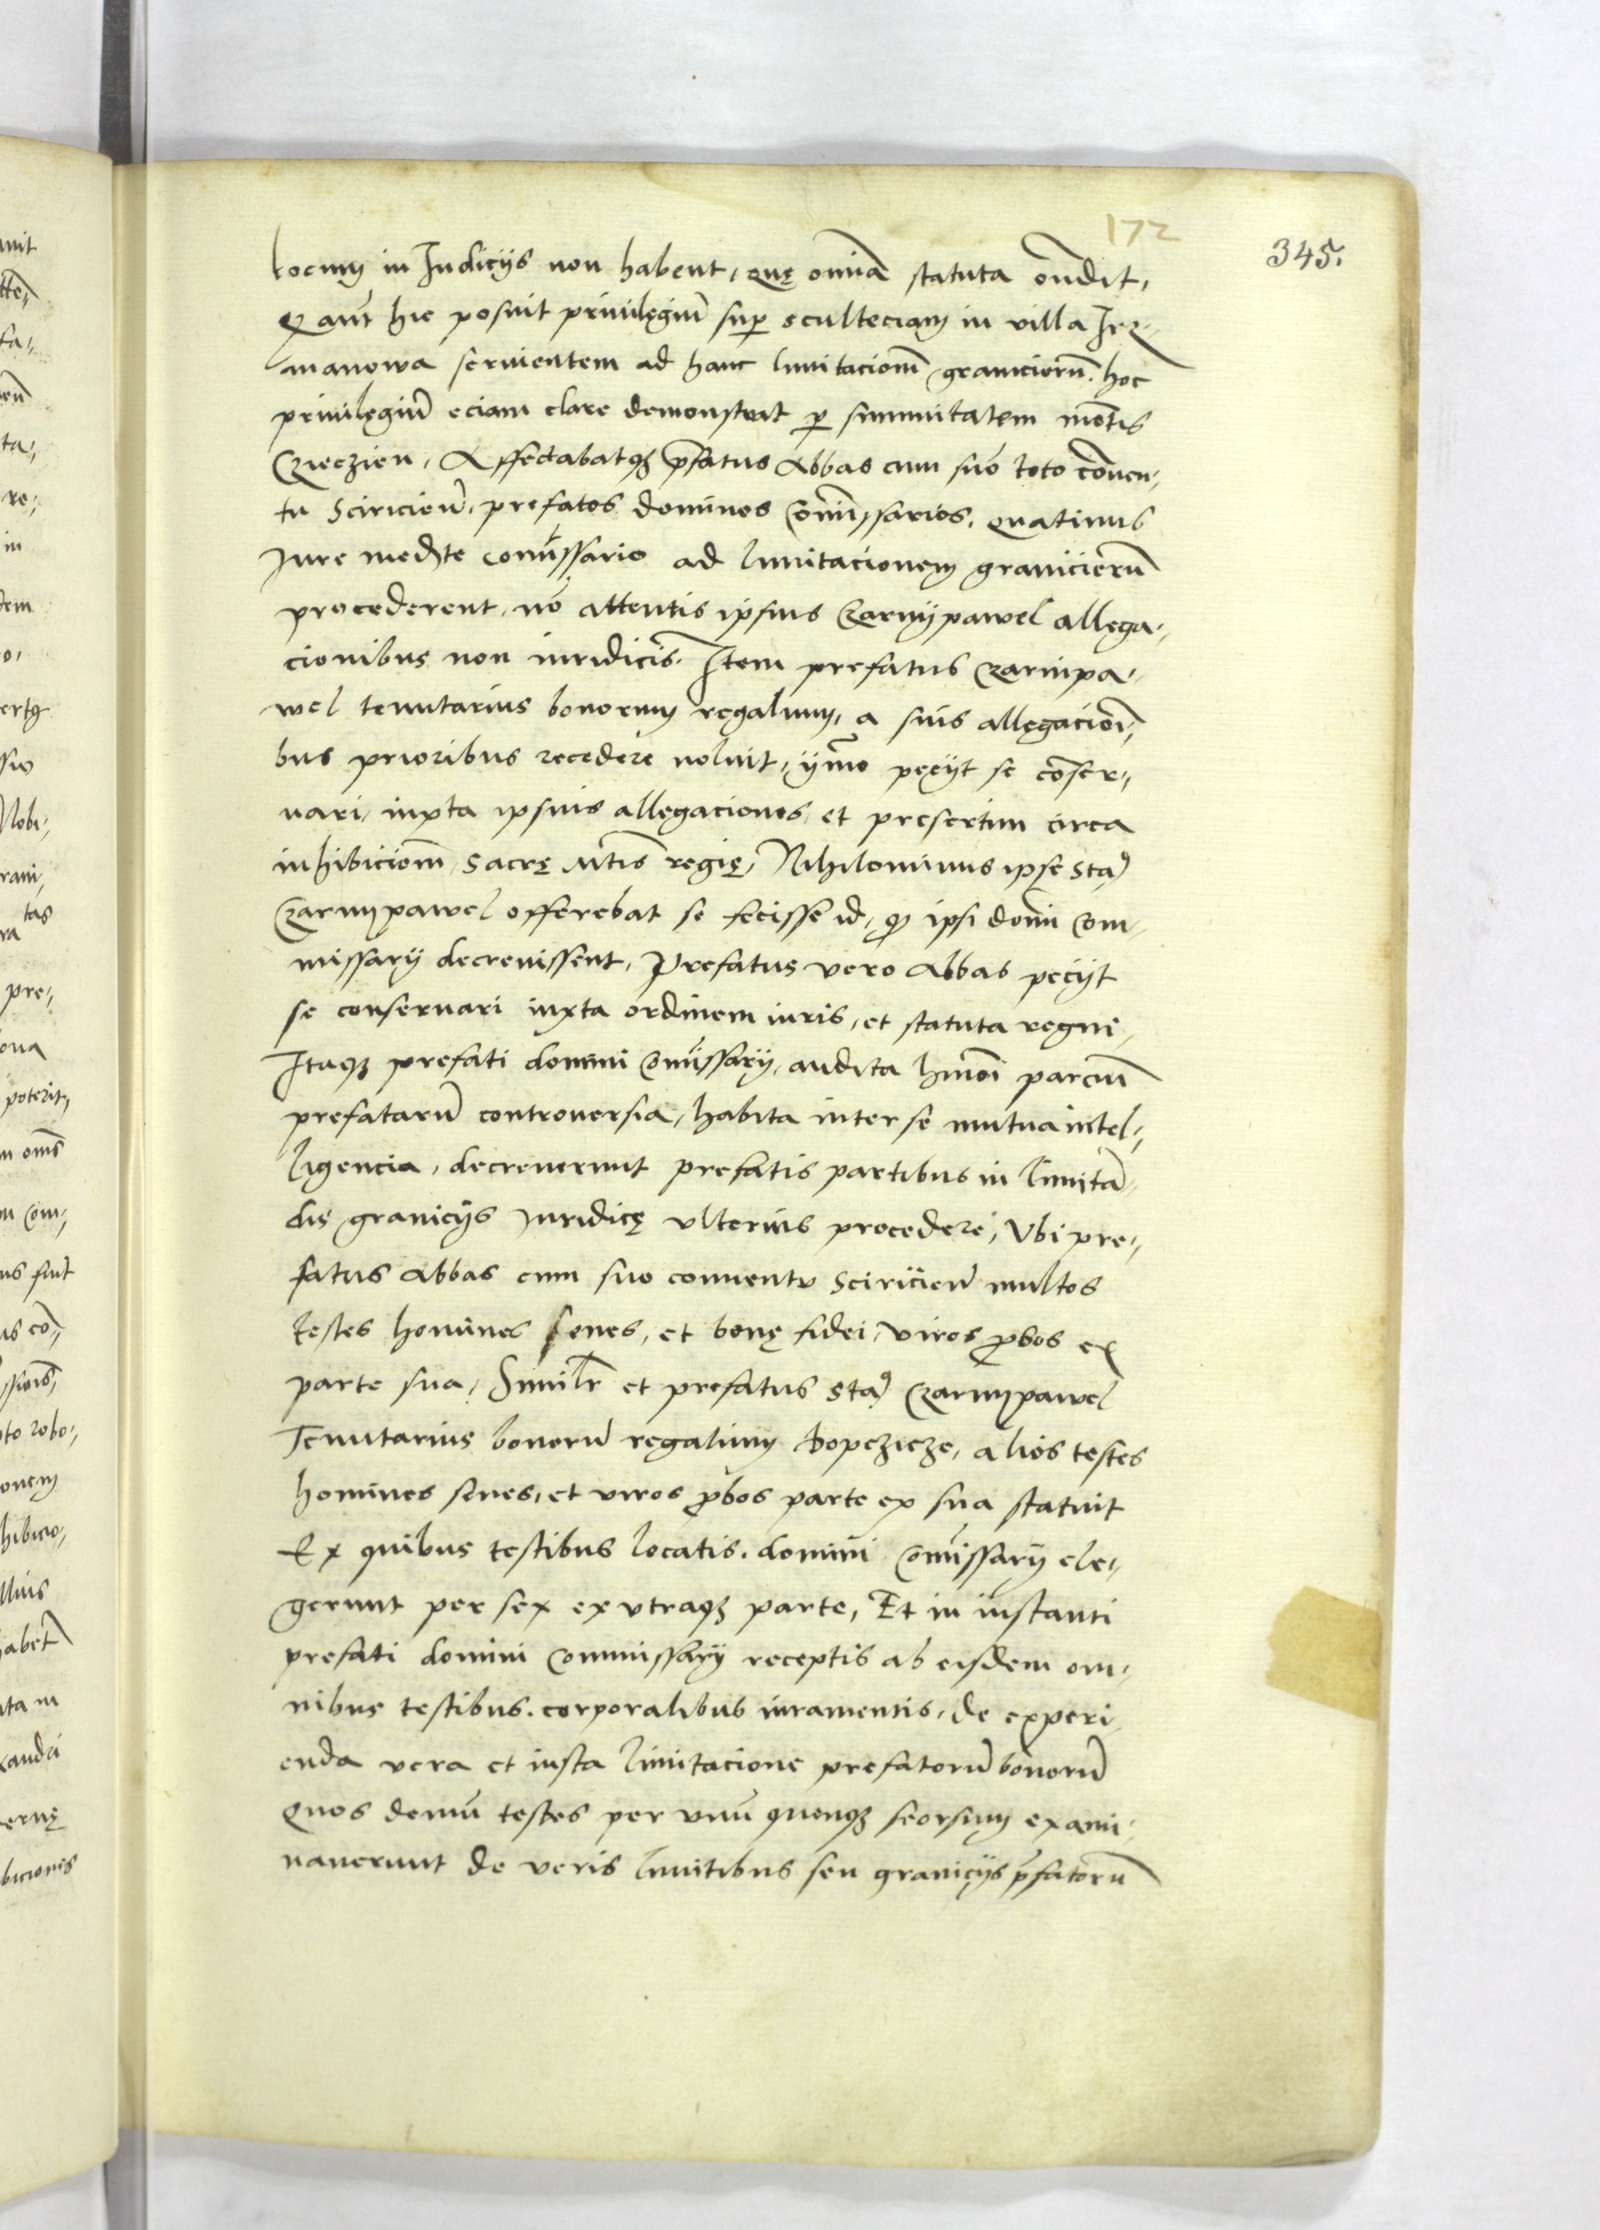 172
345.
locum in Judicijs non habent, quę omnia statuta ondit,
Q aut hic posuit priuilęgiu sup sculteciam in villa Jrz,
manowa seruientem ad hanc limitacionem granicieru. hoc
priuilęgiu eciam clare demonstrat p summitatem motis
Czieczien, Affectabatqz pfatus Abbas cum suo toto conuen,
tu Sciricien, prefatos dominos comissarios, quatinus
Jure mediate comissario ad limitacionem granicieru
procederent, no attentis ipsius Czarnypawel allęga,
cionibus non iuridicis. Item prefatus Czarnipa,
wel tenutarius bonorum regalium, a suis allęgacioni,
bus prioribus recedere noluit, ymo pecijt se conser,
uari, iuxta ipsius allęgaciones, et presertim circa
inhibiciom Sacrę Mtis regię, Nihilominus ipse Sta
Czarnypawel offerebat se fecisse id, q ipsi domi com,
missarij decreuissent, Prefatus vero Abbas pecijt
se conseruari iuxta ordinem iuris, et statuta regni,
Itaqz prefati domini comissarij, audita hmoi parcium
prefataru controuersia, habita inter se mutua intel,
ligencia, decreuerunt prefatis partibus in limitan,
dis granicijs Juridicę vlterius procedere, Vbi pre,
fatus Abbas cum suo conuentu Sciricien multos
testes homines senes, et bonę fidei, viros pbos ex
parte sua, Similr et prefatus Sta Czarnypawel
Tenutarius bonoru regalium Lopczicze, alios testes
homines senes, et viros pbos parte ex sua statuit
Ex quibus testibus locatis. domini comissarij ele,
gerunt per sex ex vtraqz parte, Et in instanti
prefati domini commissarij receptis ab eisdem om,
nibus testibus. corporalibus iuramentis, de experi,
enda vera et iusta limitacione prefatoru bonoru
Quos demu testes per vnu quenqz seorsum exami,
nauerunt de veris limitibus seu granicijs pfatoru